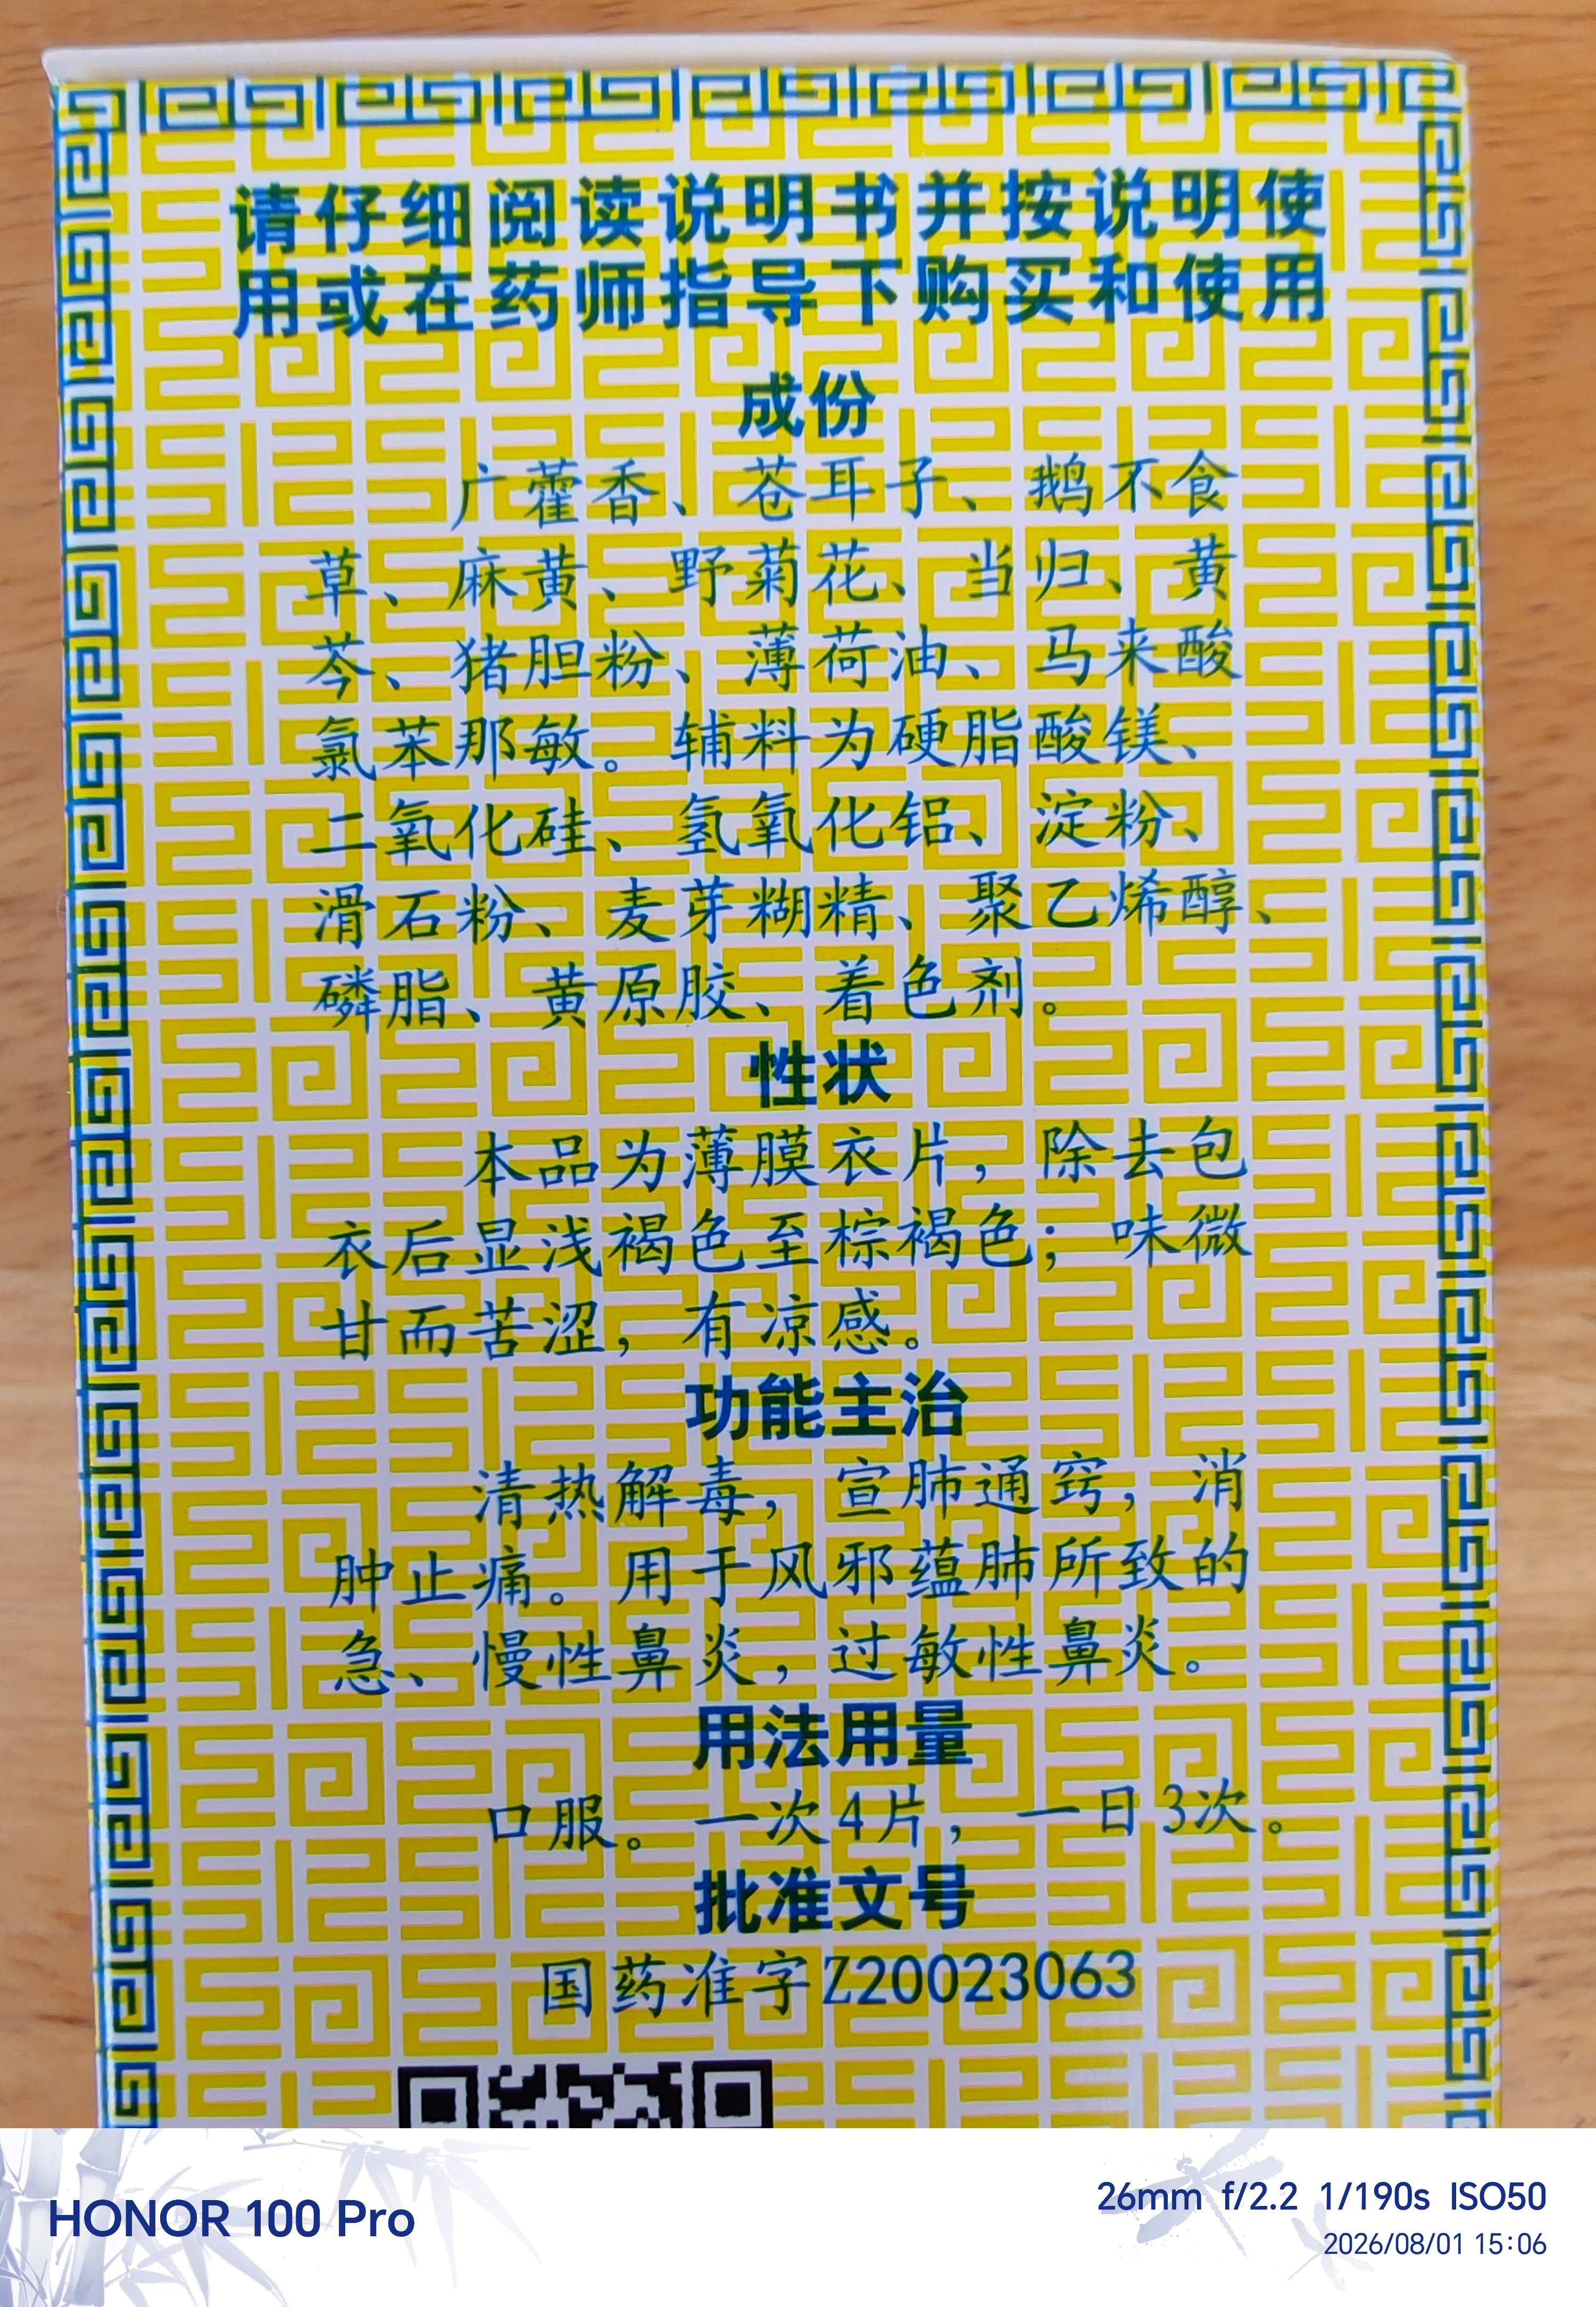 请仔细阅读说明书并按说明使
用或在药师指导下购买和使用
成份
广藿香、苍耳子、鹅不食
草、麻黄、野菊花、当归、黄
芩、猪胆粉、薄荷油、马来酸
氯苯那敏。辅料为硬脂酸镁、
二氧化硅、氢氧化铝、淀粉、
滑石粉、麦芽糊精、聚乙烯醇、
磷脂、黄原胶、着色剂。
性状
本品为薄膜衣片，除去包
衣后显浅褐色至棕褐色；味微
甘而苦涩，有凉感。
功能主治
清热解毒，宣肺通窍，消
肿止痛。用于风邪蕴肺所致的
急、慢性鼻炎，过敏性鼻炎。
用法用量
口服。一次4片，一日3次。
批准文号
国药准字Z20023063
HONOR 100 Pro
26mm f/2.2 1/190s ISO50
2026/08/01 15:06